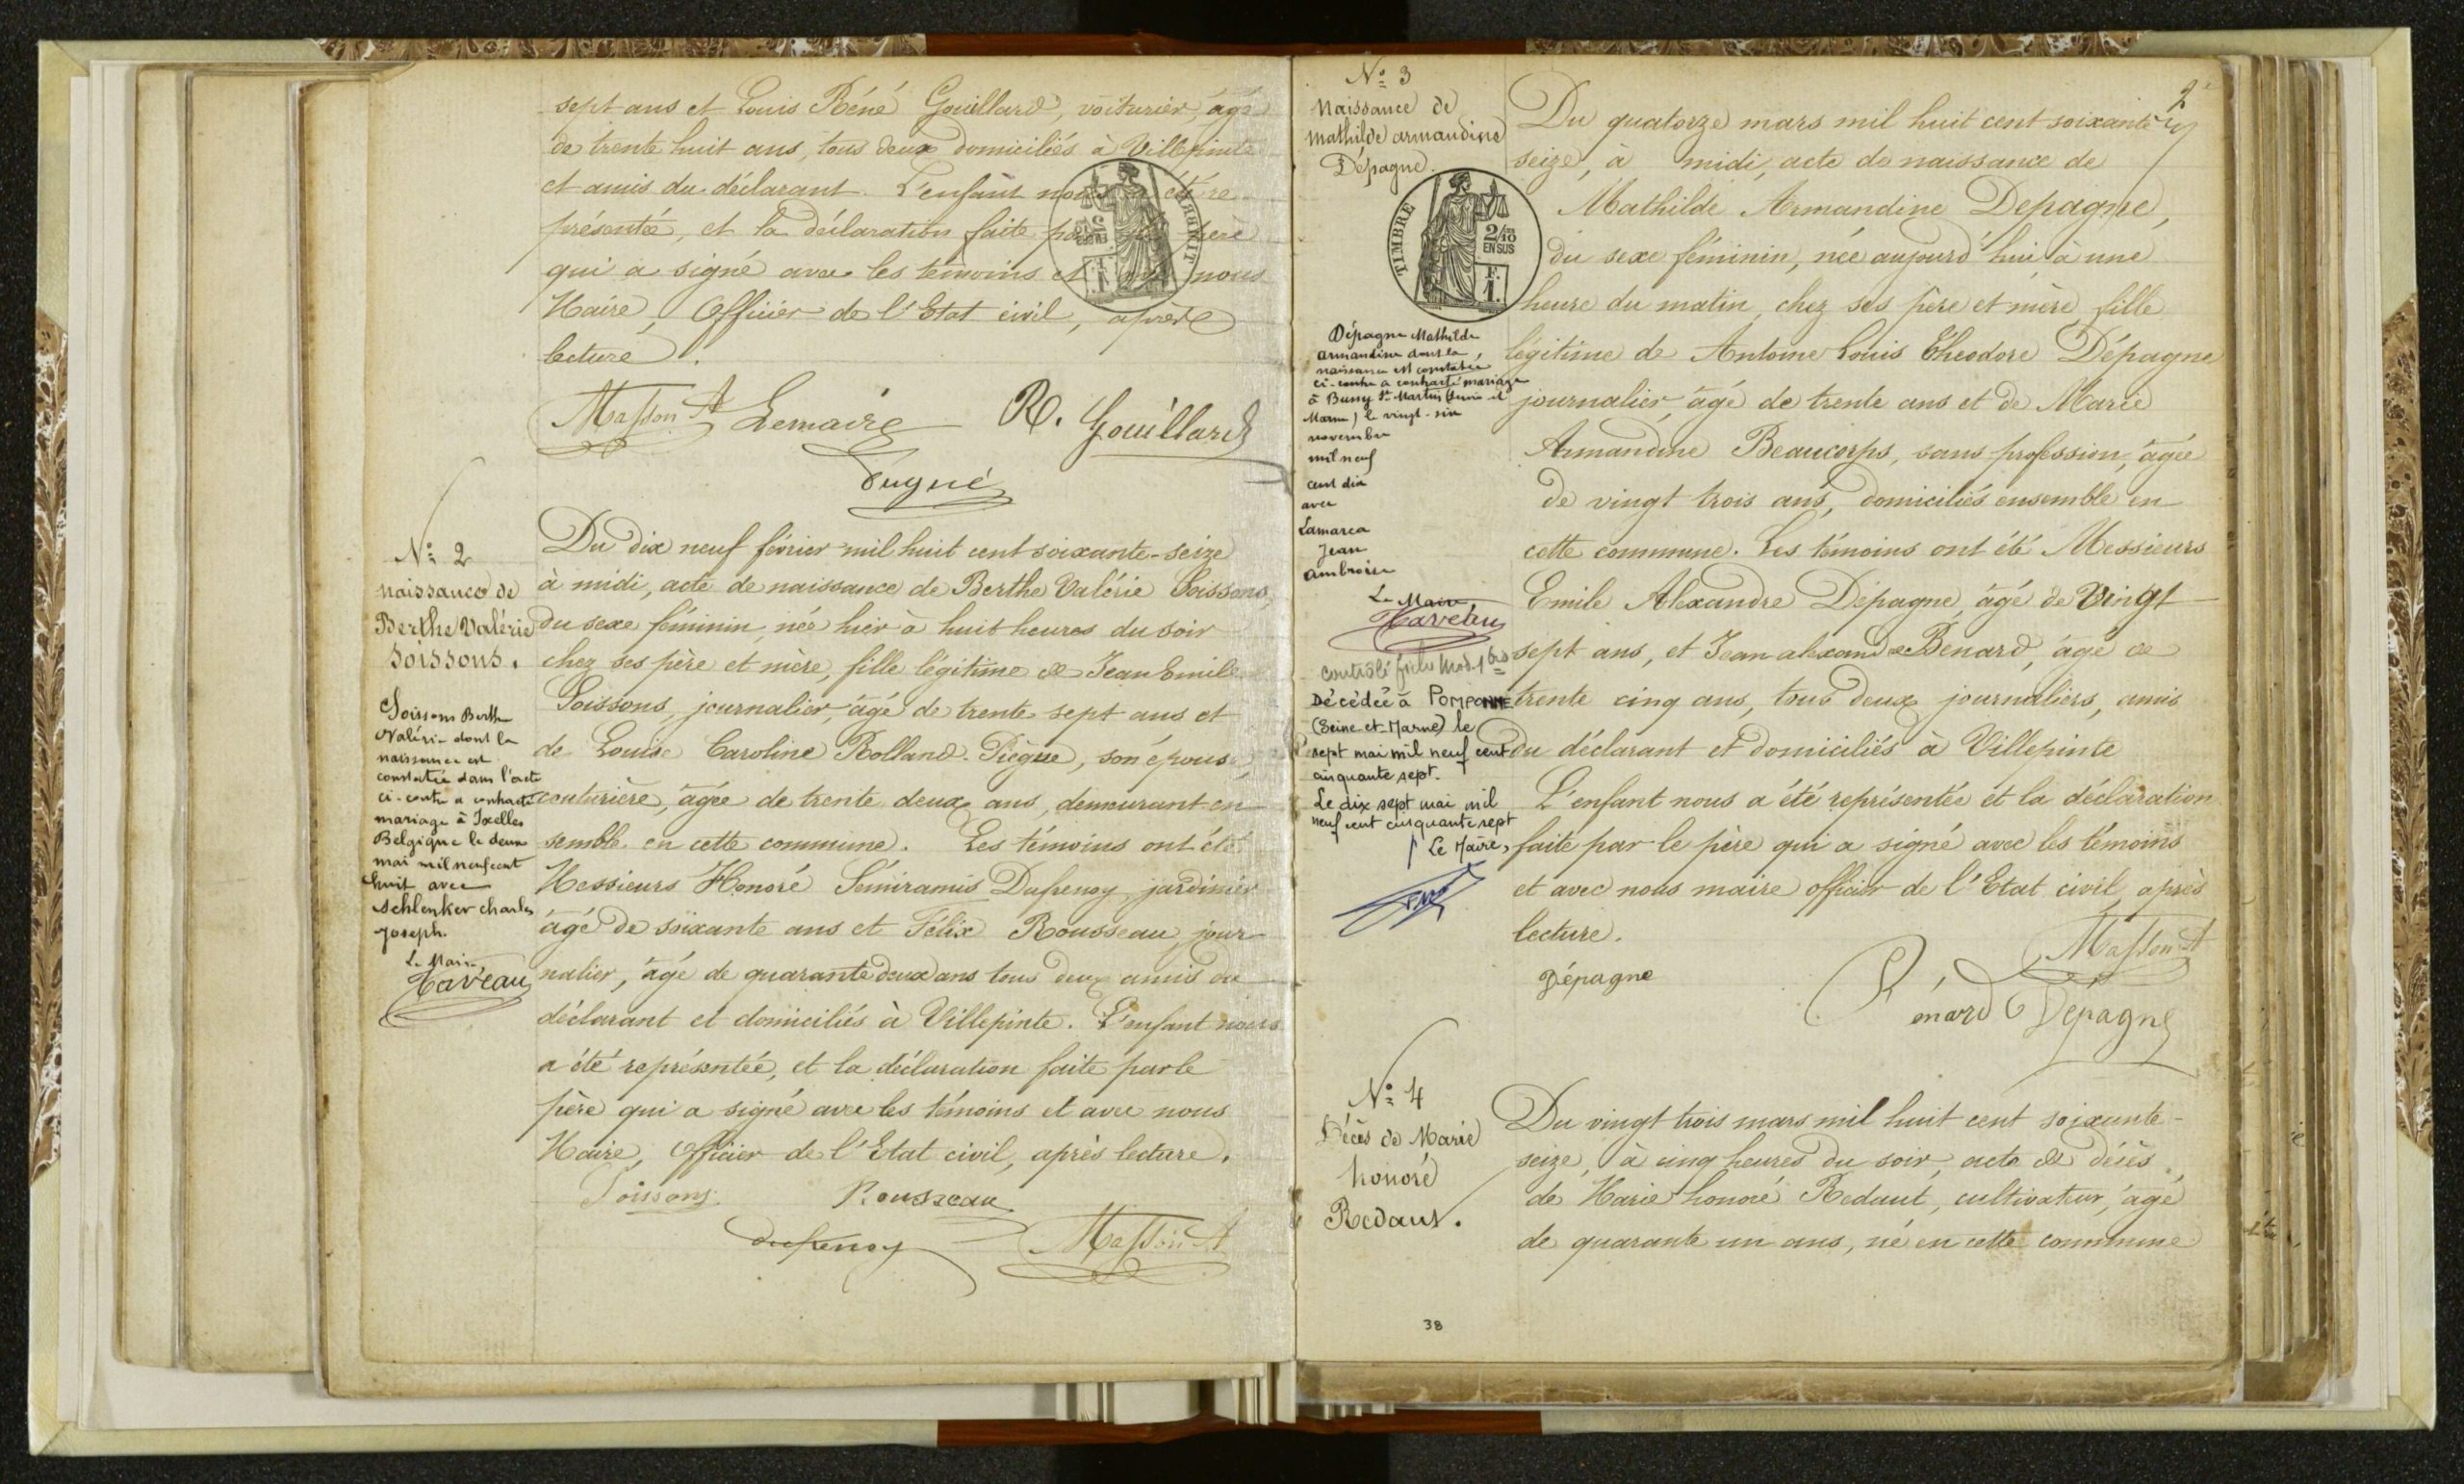 sept ans et Louis Réné Gouillard, voiturier, âgé
de trente huit ans, tous deux domiciliés à Villepinte
et amis du déclarant. L'enfant nous a été re
présentée, et la déclaration faite par le père
qui a signé avec les témoins et avec nous
Maire, Officier de l'Etat civil, après
lecture.
Masson A Lemaire R. Gouillard
Dugué
N° 2
Naissance de
Berthe Valérie
Soissons.
Soissons Berthe
Valérie dont la
naissance est
constatée dans l'acte
ci-contre a contracté
mariage à Ixelles
Belgique le deux
mai mil neuf cent
huit avec
Schlenker Charles
Joseph.
Le Maire
Haveau
Du dix neuf février mil huit cent soixante-seize
à midi, acte de naissance de Berthe Valérie Soissons,
du sexe féminin, née hier à huit heures du soir
chez ses père et mère, fille légitime de Jean Emile
Soissons, journalier, âgé de trente sept ans et
de Louise Caroline Rolland-Piègue, son épouse,
couturière, âgée de trente deux ans, demeurant en
semble en cette commune. Les témoins ont été
Messieurs Honoré Sémiramis Dufrenoy, jardinier
âgé de soixante ans et Félix Rousseau, jour
nalier, âgé de quarante deux ans tous deux amis du
déclarant et domiciliés à Villepinte. L'enfant nous
a été représentée, et la déclaration faite par le
père qui a signé avec les témoins et avec nous
Maire, Officier de l'Etat civil, après lecture.
Soissons Rousseau
Dufrenoy Masson A
2e
N° 3
Naissance de
Mathilde Armandine
Dépagne.
TIMBRE
2/10
EN SUS
F.
1.
Dépagne Mathilde
Armandine dont la
naissance est constatée
ci-contre a contracté mariage
à Bussy St Martin (Seine et
Marne) le vingt-six
novembre
mil neuf
cent dix
avec
Lamarca
Jean
Ambroise
Le Maire
Haveau
Contrôlé fiche Mod. 1 bis
Décédée à POMPONNE
(Seine-et-Marne) le
sept mai mil neuf cent
cinquante sept.
Le dix sept mai mil
neuf cent cinquante sept
Le Maire,
Du quatorze mars mil huit cent soixante
seize, à midi, acte de naissance de
Mathilde Armandine Depagne,
du sexe féminin, née aujourd'hui à une
heure du matin, chez ses père et mère, fille
légitime de Antoine Louis Théodore Dépagne
journalier, âgé de trente ans et de Marie
Armandine Beaucorps, sans profession, âgée
de vingt trois ans, domiciliés ensemble en
cette commune. Les témoins ont été Messieurs
Emile Alexandre Dépagne, âgé de Vingt
sept ans, et Jean alexandre Benard, âgé de
trente cinq ans, tous deux journaliers, amis
du déclarant et domiciliés à Villepinte
L'enfant nous a été représentée et la déclaration
faite par le père qui a signé avec les témoins
et avec nous maire officier de l'Etat civil, après
lecture.
Masson A
Dépagne
Bénard Dépagne
N° 4
Décès de Marie
honoré
Redaut.
Du vingt trois mars mil huit cent soixante-
seize, à cinq heures du soir, acte de décès
de Marie honoré Redaut, cultivateur, âgé
de quarante un ans, né en cette commune
38